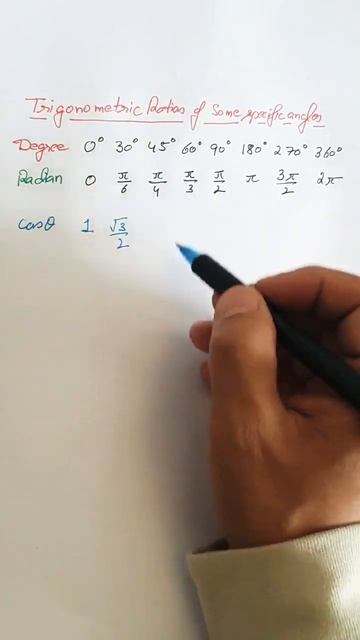 Trigonometric Ratios of Some specific angles
Degree 0° 30° 45° 60° 90° 180° 270° 360°
Radian 0 π/6 π/4 π/3 π/2 π 3π/2 2π
cosθ 1 √3/2